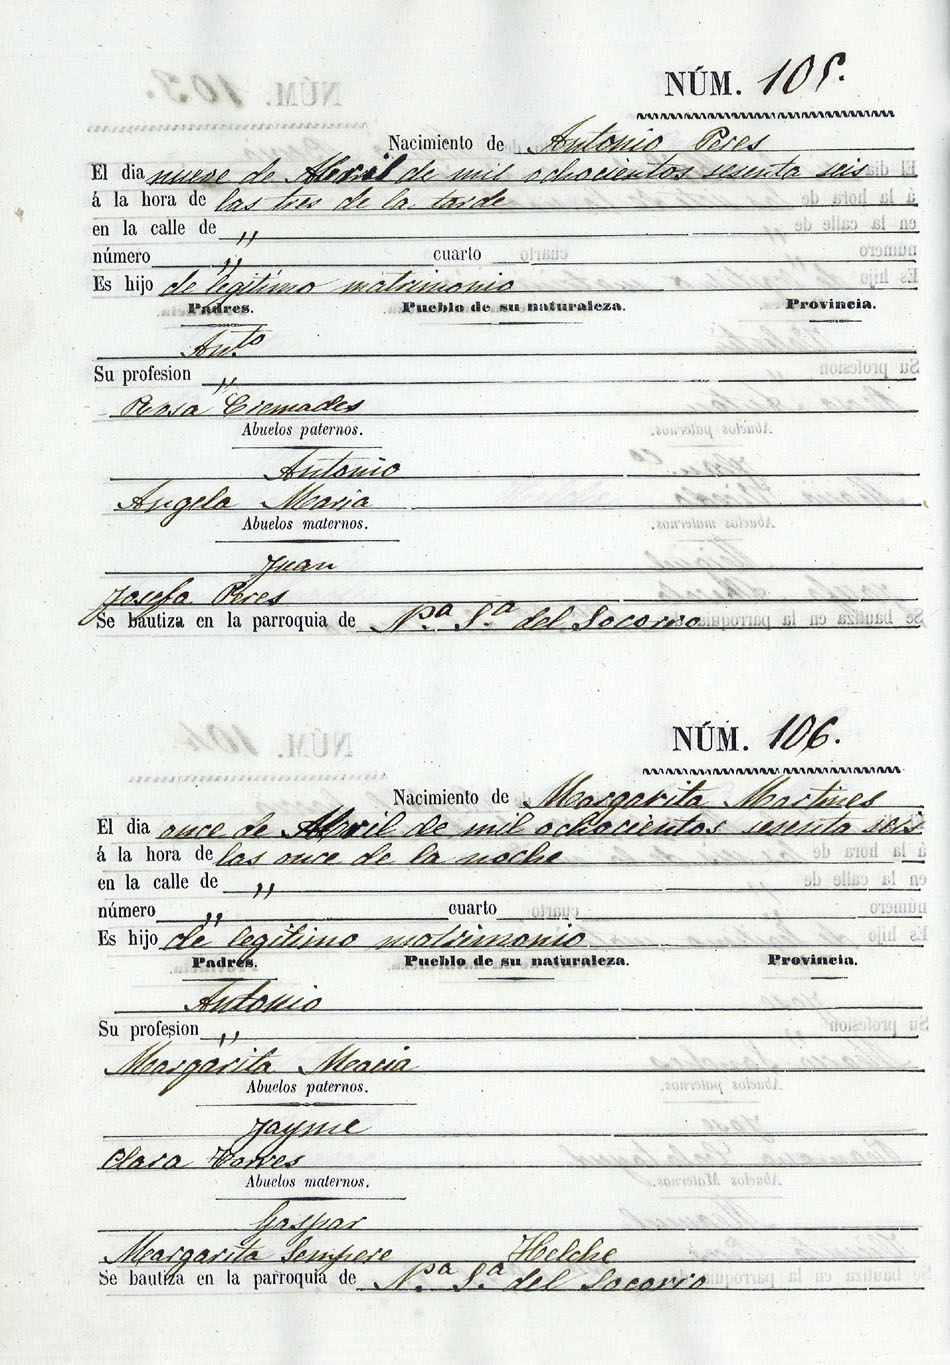 NÚM. 105.
Nacimiento de Antonio Peres
El dia nueve de Abril de mil ochocientos sesenta seis
á la hora de las tres de la tarde
en la calle de "
número " cuarto
Es hijo de legitimo matrimonio
Padres. Pueblo de su naturaleza. Provincia.
Antº
Su profesion "
Rosa Cremades
Abuelos paternos.
Antonio
Angela Maria
Abuelos maternos.
Juan
Josefa Peres
Se bautiza en la parroquia de Nª Sª del Socorro
NÚM. 106.
Nacimiento de Margarita Martines
El dia once de Abril de mil ochocientos sesenta seis
á la hora de las once de la noche
en la calle de "
número " cuarto
Es hijo de legitimo matrimonio
Padres. Pueblo de su naturaleza. Provincia.
Antonio
Su profesion "
Margarita Macia
Abuelos paternos.
Jayme
Clara Torres
Abuelos maternos.
Gaspar
Margarita Sempere Helche
Se bautiza en la parroquia de Nª Sª del Socorro